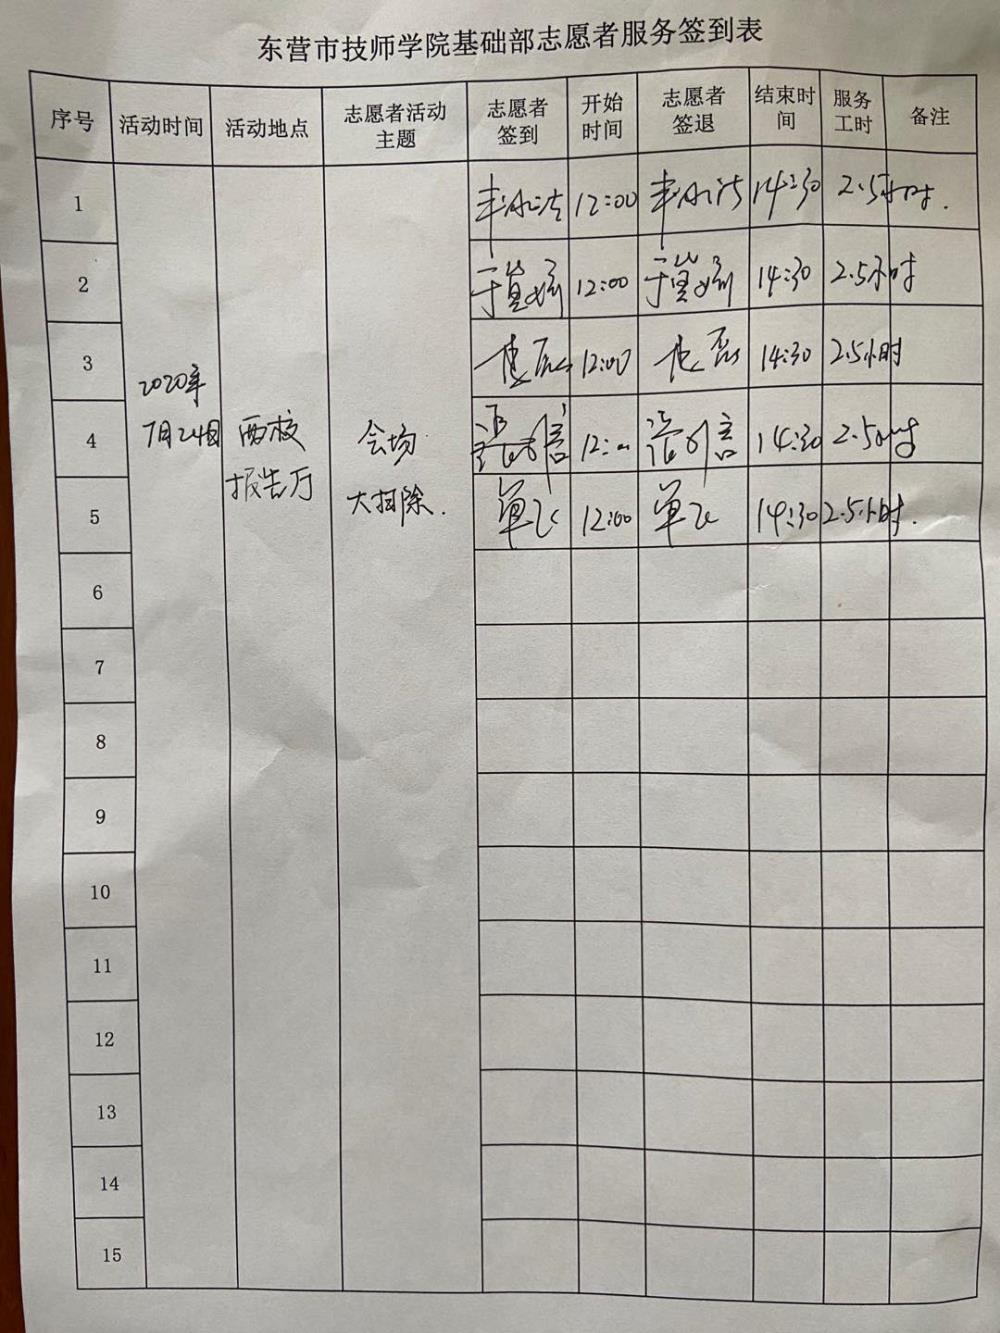 东营市技师学院基础部志愿者服务签到表
序号 活动时间 活动地点 志愿者活动主题 志愿者签到 开始时间 志愿者签退 结束时间 服务工时 备注
2020年7月24日 西校报告厅 会场大扫除.
1 12:00 14:30 2.5小时.
2 12:00 14:30 2.5小时
3 12:00 14:30 2.5小时
4 12:00 14:30 2.5小时
5 单飞 12:00 单飞 14:30 2.5小时.
6
7
8
9
10
11
12
13
14
15